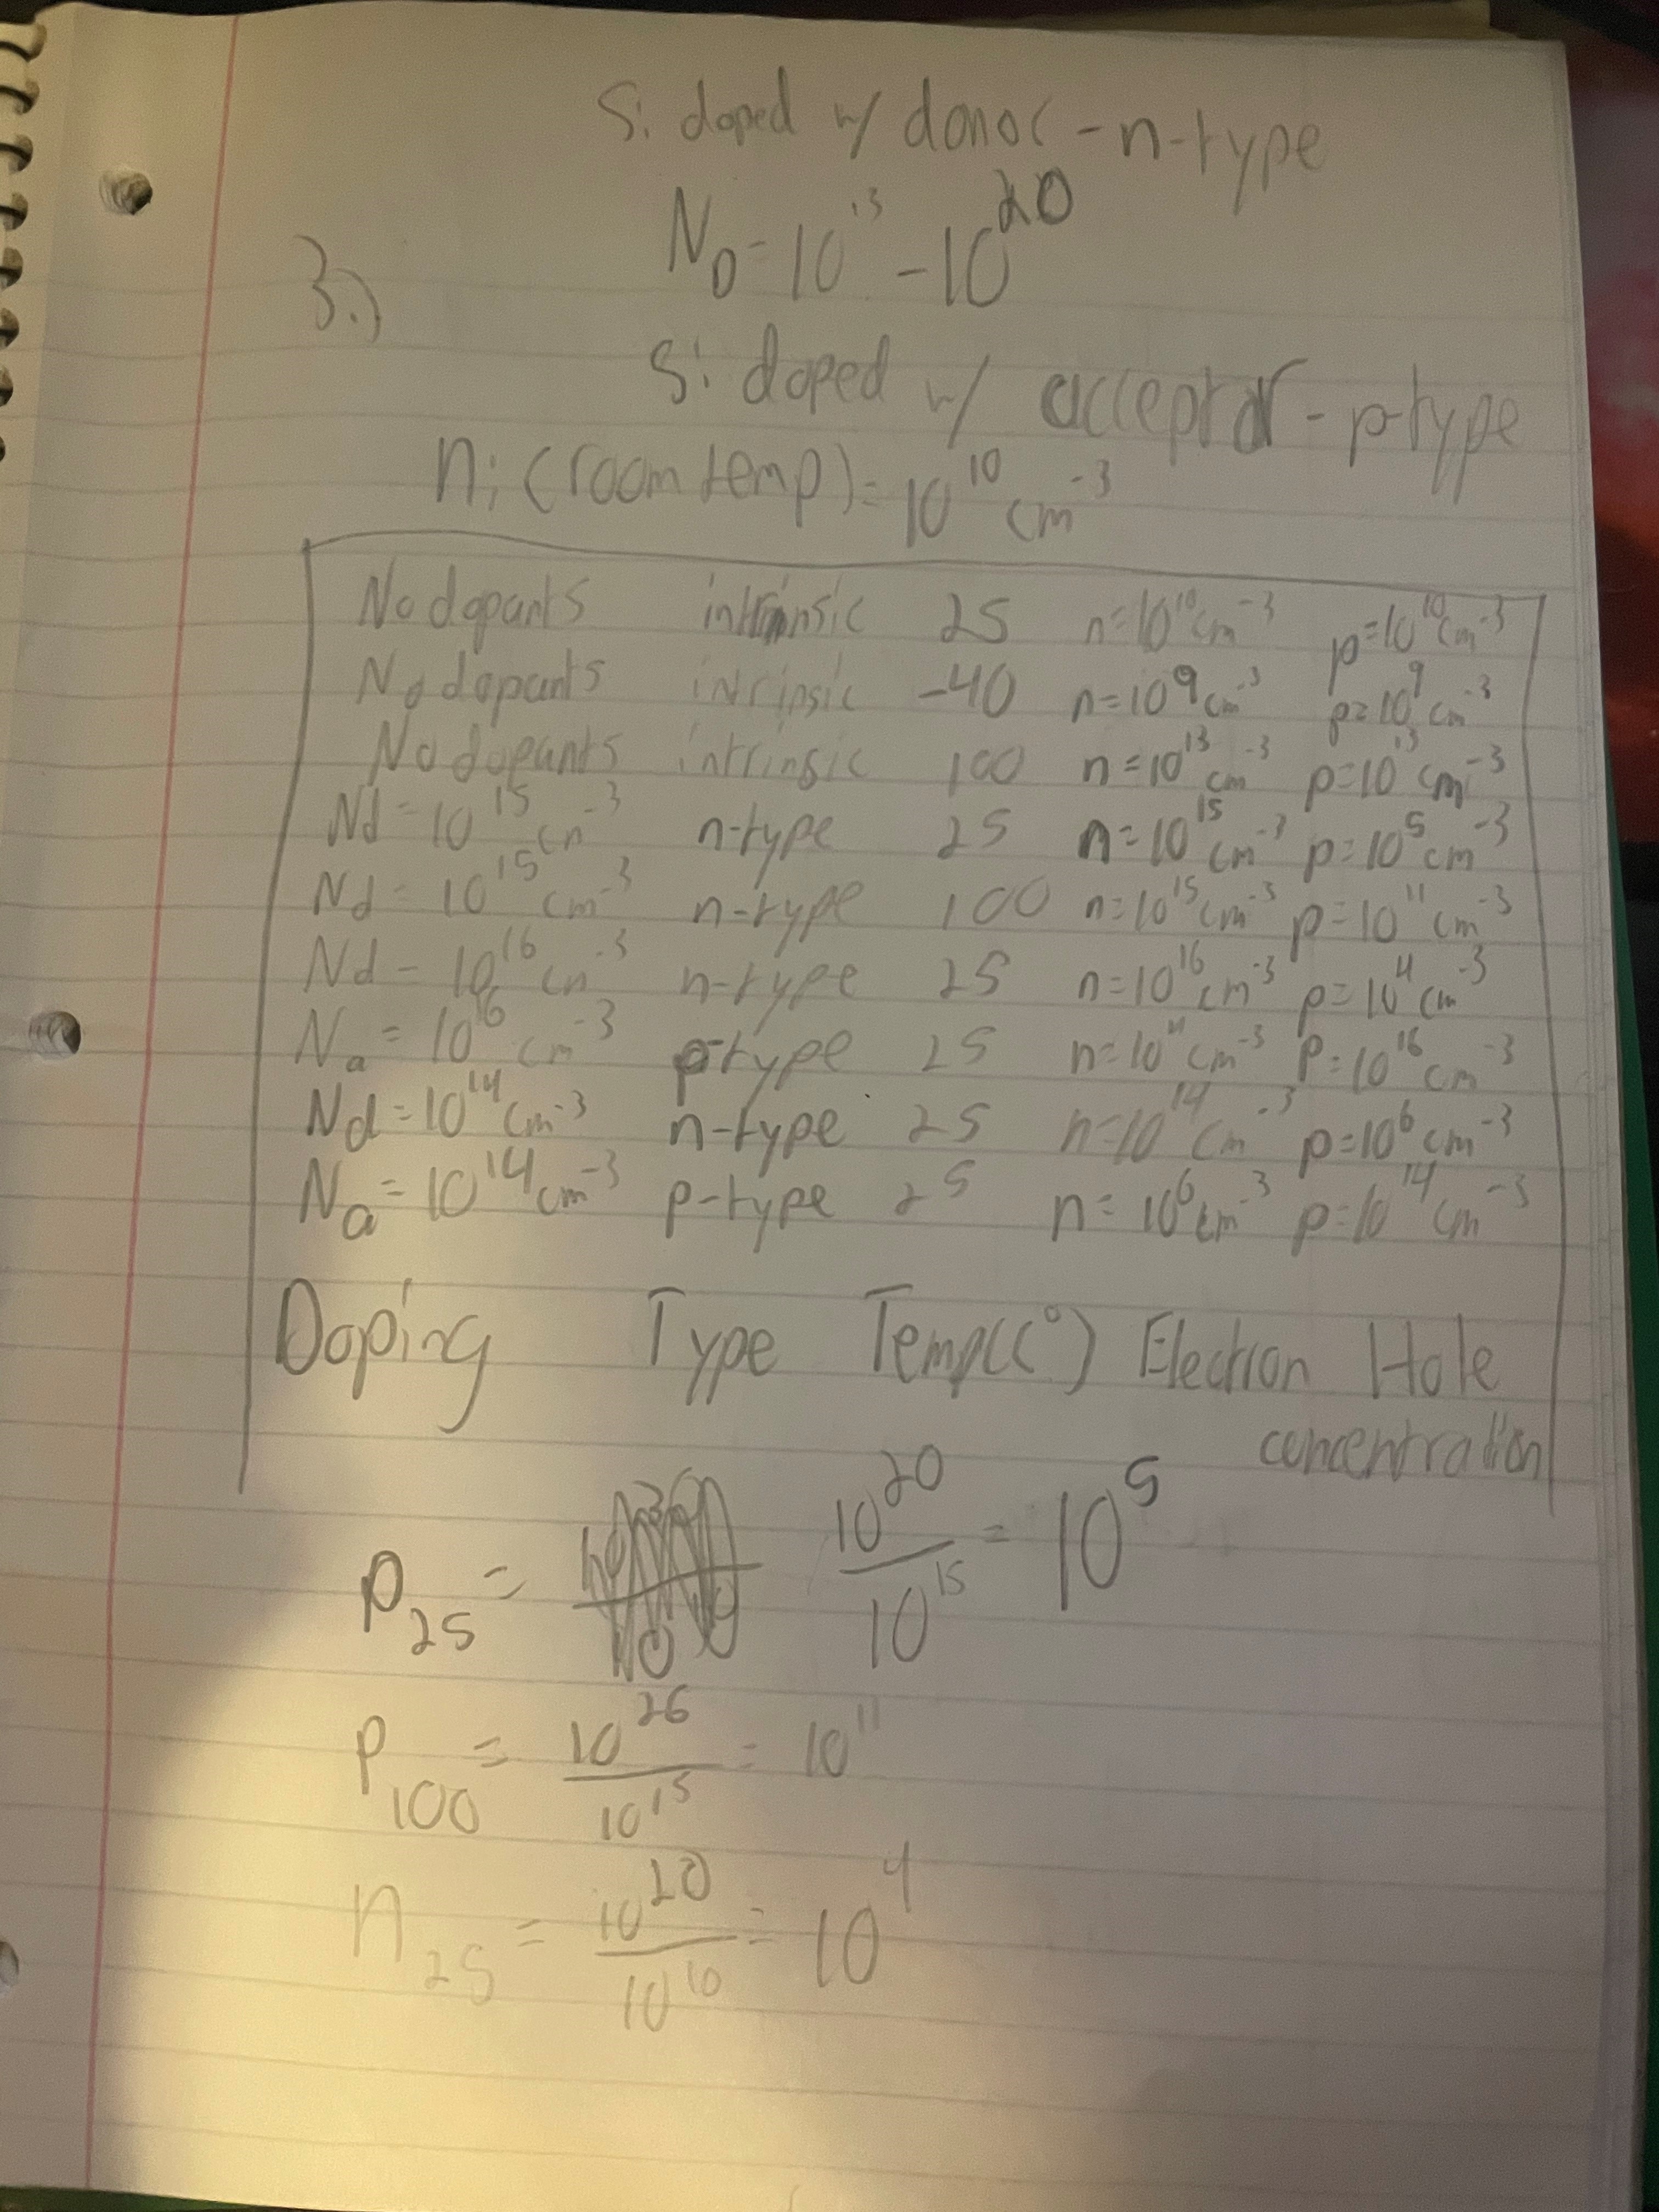 Si doped w/ donor - n-type
N_D = 10^13 - 10^20
3.)
Si doped w/ acceptor - p-type
n_i (room temp) = 10^10 cm^-3
No dopants intrinsic 25 n=10^10 cm^-3 p=10^10 cm^-3
No dopants intrinsic -40 n=10^9 cm^-3 p=10^9 cm^-3
No dopants intrinsic 100 n=10^13 cm^-3 p=10^13 cm^-3
Nd = 10^15 cm^-3 n-type 25 n=10^15 cm^-3 p=10^5 cm^-3
Nd = 10^15 cm^-3 n-type 100 n=10^15 cm^-3 p=10^11 cm^-3
Nd = 10^16 cm^-3 n-type 25 n=10^16 cm^-3 p=10^4 cm^-3
Na = 10^16 cm^-3 p-type 25 n=10^4 cm^-3 p=10^16 cm^-3
Nd = 10^14 cm^-3 n-type 25 n=10^14 cm^-3 p=10^6 cm^-3
Na = 10^14 cm^-3 p-type 25 n=10^6 cm^-3 p=10^14 cm^-3
Doping Type Temp(C°) Electron Hole
concentration
p_25 = 10^20 / 10^15 = 10^5
p_100 = 10^26 / 10^15 = 10^11
n_25 = 10^20 / 10^16 = 10^4